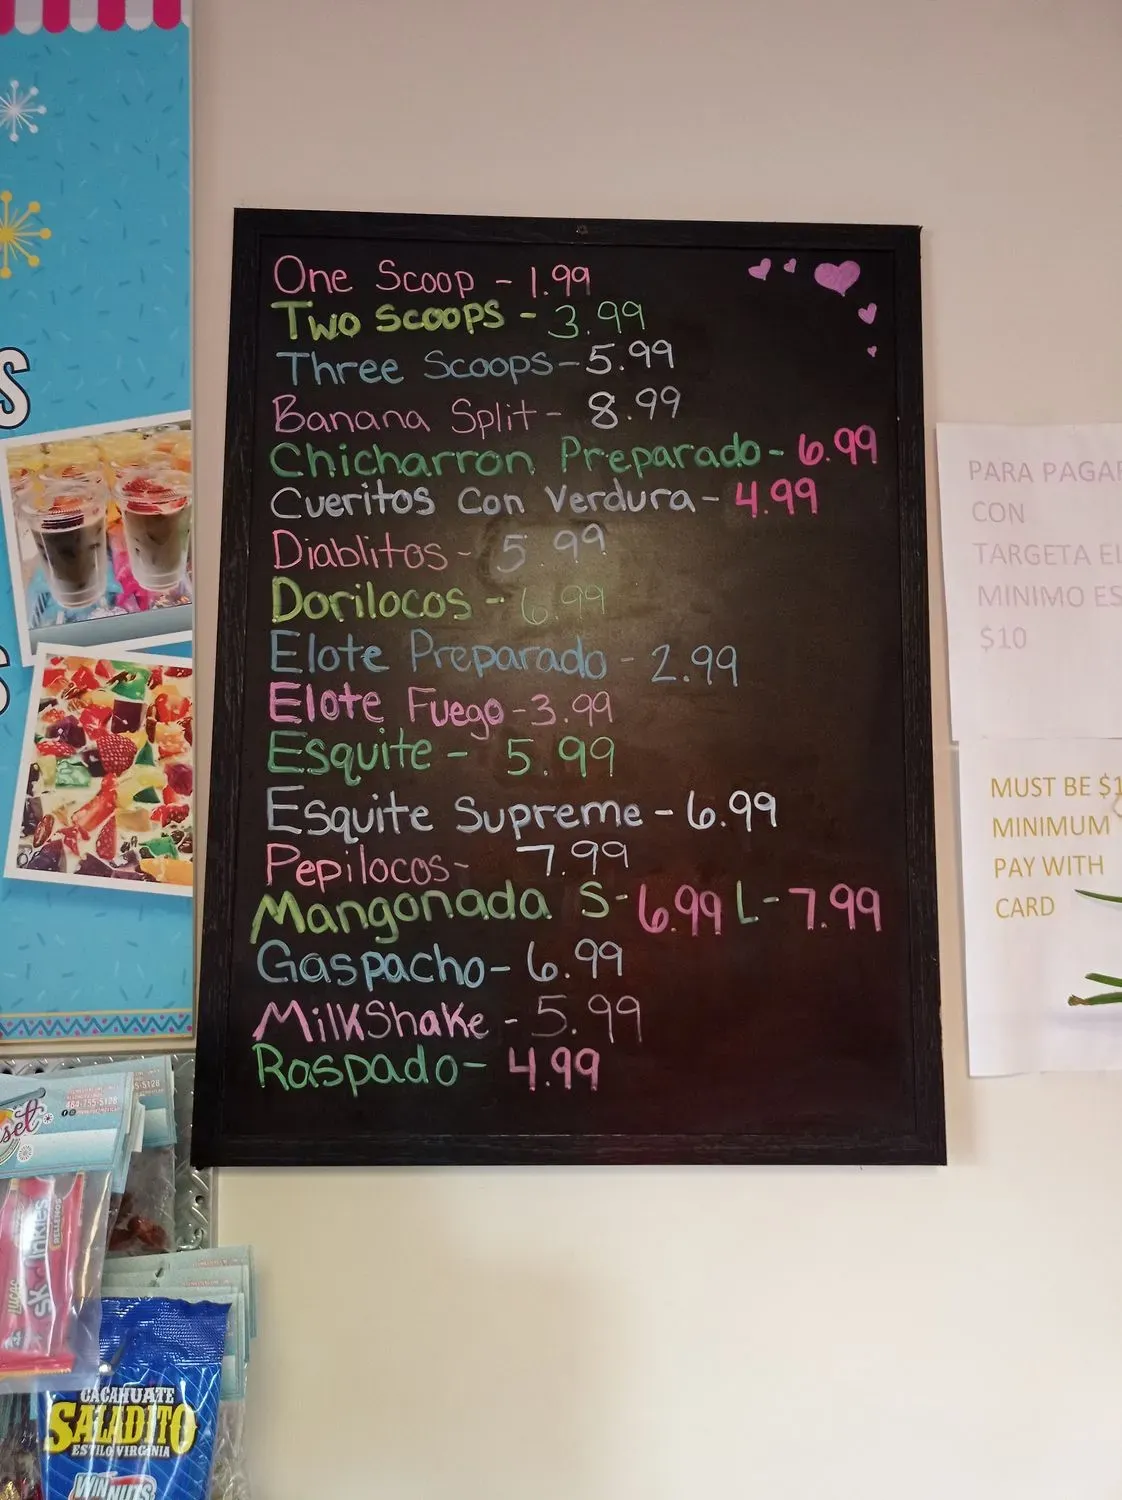 One Scoop - 1.99
Two Scoops - 3.99
Three Scoops - 5.99
Banana Split - 8.99
Chicharron Preparado - 6.99
Cueritos Con Verdura - 4.99
Diablitos - 5.99
Dorilocos - 6.99
Elote Preparado - 2.99
Elote Fuego - 3.99
Esquite - 5.99
Esquite Supreme - 6.99
Pepilocos - 7.99
Mangonada S - 6.99 L - 7.99
Gaspacho - 6.99
MilkShake - 5.99
Raspado - 4.99
PARA PAGAR
CON
TARGETA EL
MINIMO ES
$10
MUST BE $1
MINIMUM
PAY WITH
CARD
S
S
set
484-755-5128
LUCAS
Skwinkles
RELLENOS
CACAHUATE
SALADITO
ESTILO VIRGINIA
WINNUTS